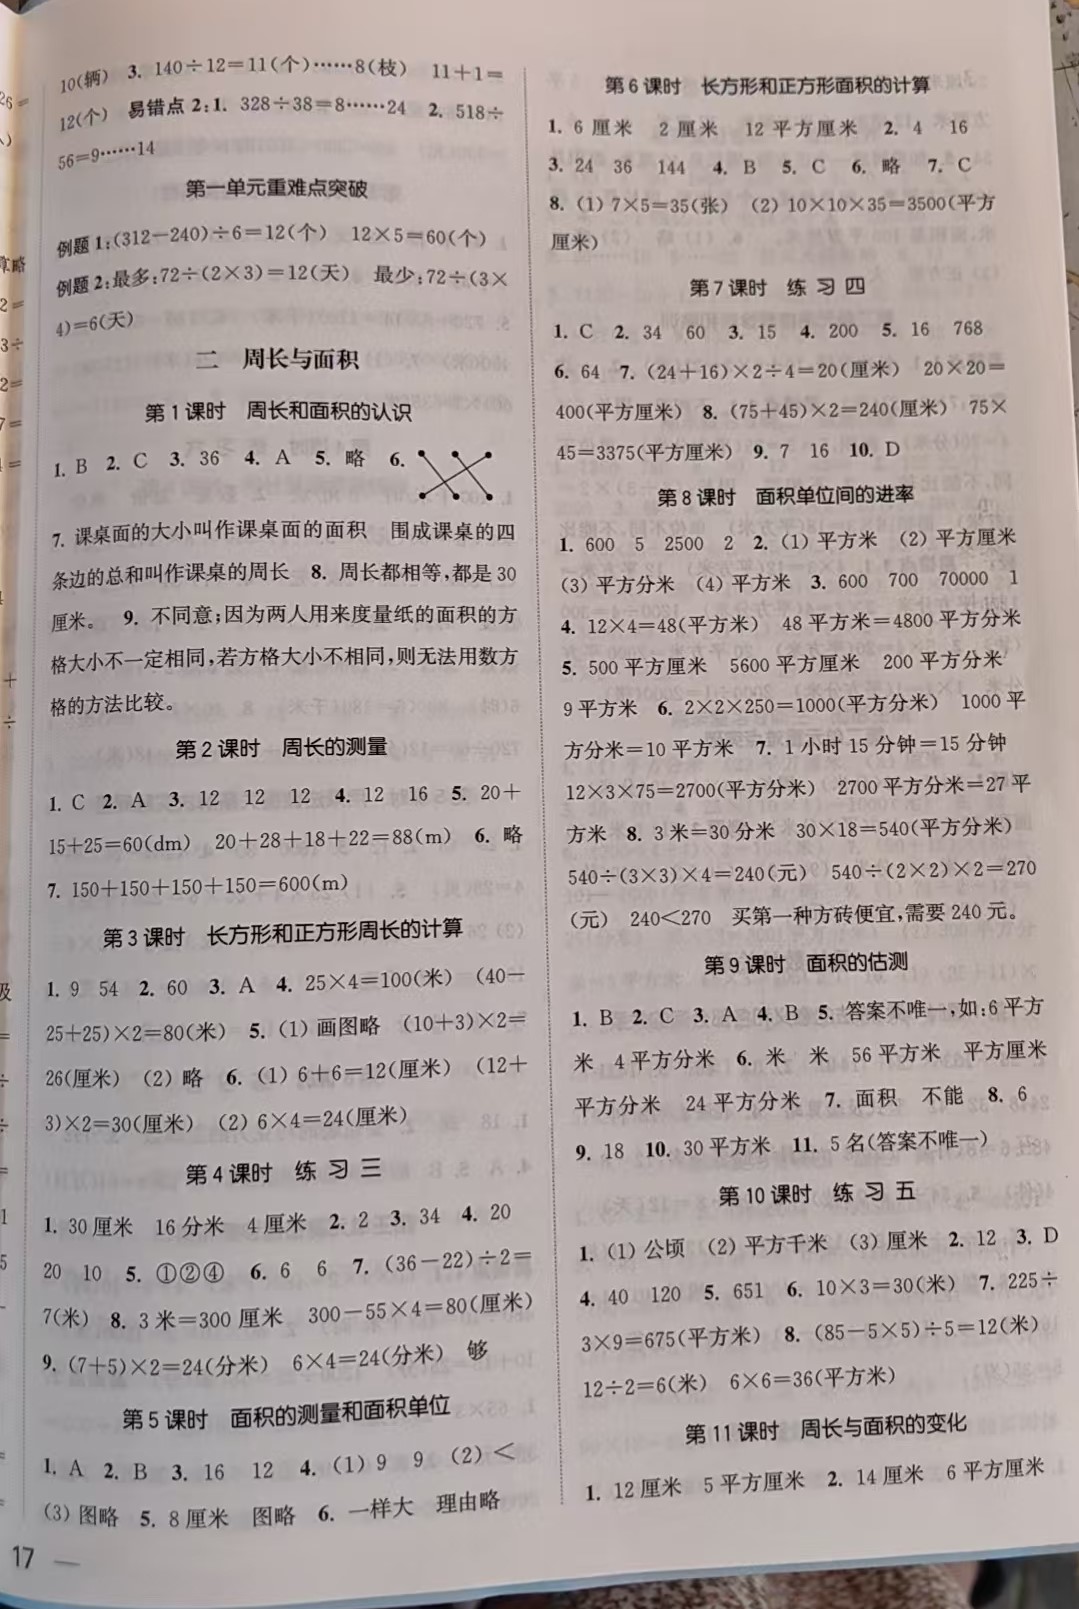 10(辆) 3. 140÷12=11(个)……8(枝) 11+1=
12(个) 易错点2:1. 328÷38=8……24 2. 518÷
56=9……14
第一单元重难点突破
例题1:(312-240)÷6=12(个) 12×5=60(个)
例题2:最多:72÷(2×3)=12(天) 最少:72÷(3×
4)=6(天)
二 周长与面积
第1课时 周长和面积的认识
1. B 2. C 3. 36 4. A 5. 略 6.
7. 课桌面的大小叫作课桌面的面积 围成课桌的四
条边的总和叫作课桌的周长 8. 周长都相等,都是30
厘米。 9. 不同意;因为两人用来度量纸的面积的方
格大小不一定相同,若方格大小不相同,则无法用数方
格的方法比较。
第2课时 周长的测量
1. C 2. A 3. 12 12 12 4. 12 16 5. 20+
15+25=60(dm) 20+28+18+22=88(m) 6. 略
7. 150+150+150+150=600(m)
第3课时 长方形和正方形周长的计算
1. 9 54 2. 60 3. A 4. 25×4=100(米) (40-
25+25)×2=80(米) 5. (1) 画图略 (10+3)×2=
26(厘米) (2) 略 6. (1) 6+6=12(厘米) (12+
3)×2=30(厘米) (2) 6×4=24(厘米)
第4课时 练习三
1. 30厘米 16分米 4厘米 2. 2 3. 34 4. 20
20 10 5. ①②④ 6. 6 6 7. (36-22)÷2=
7(米) 8. 3米=300厘米 300-55×4=80(厘米)
9. (7+5)×2=24(分米) 6×4=24(分米) 够
第5课时 面积的测量和面积单位
1. A 2. B 3. 16 12 4. (1) 9 9 (2) <
(3) 图略 5. 8厘米 图略 6. 一样大 理由略
17
第6课时 长方形和正方形面积的计算
1. 6厘米 2厘米 12平方厘米 2. 4 16
3. 24 36 144 4. B 5. C 6. 略 7. C
8. (1) 7×5=35(张) (2) 10×10×35=3500(平方
厘米)
第7课时 练习四
1. C 2. 34 60 3. 15 4. 200 5. 16 768
6. 64 7. (24+16)×2÷4=20(厘米) 20×20=
400(平方厘米) 8. (75+45)×2=240(厘米) 75×
45=3375(平方厘米) 9. 7 16 10. D
第8课时 面积单位间的进率
1. 600 5 2500 2 2. (1) 平方米 (2) 平方厘米
(3) 平方分米 (4) 平方米 3. 600 700 70000 1
4. 12×4=48(平方米) 48平方米=4800平方分米
5. 500平方厘米 5600平方厘米 200平方分米
9平方米 6. 2×2×250=1000(平方分米) 1000平
方分米=10平方米 7. 1小时15分钟=15分钟
12×3×75=2700(平方分米) 2700平方分米=27平
方米 8. 3米=30分米 30×18=540(平方分米)
540÷(3×3)×4=240(元) 540÷(2×2)×2=270
(元) 240<270 买第一种方砖便宜,需要240元。
第9课时 面积的估测
1. B 2. C 3. A 4. B 5. 答案不唯一,如:6平方
米 4平方分米 6. 米 米 56平方米 平方厘米
平方分米 24平方分米 7. 面积 不能 8. 6
9. 18 10. 30平方米 11. 5名(答案不唯一)
第10课时 练习五
1. (1) 公顷 (2) 平方千米 (3) 厘米 2. 12 3. D
4. 40 120 5. 651 6. 10×3=30(米) 7. 225÷
3×9=675(平方米) 8. (85-5×5)÷5=12(米)
12÷2=6(米) 6×6=36(平方米)
第11课时 周长与面积的变化
1. 12厘米 5平方厘米 2. 14厘米 6平方厘米